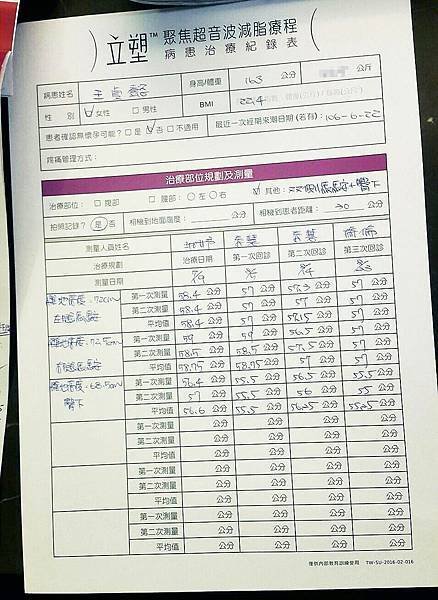 立塑™ 聚焦超音波減脂療程
病患治療紀錄表
病患姓名 王貞懿 身高/體重 163 公分 公斤
性 別 ☑女性 □男性 BMI 22.4
患者確認無懷孕可能? □是 ☑否 □不適用 最近一次經期來潮日期 (若有): 106-6-22
疼痛管理方式:
治療部位規劃及測量
治療部位: □腹部 □腰部:○左○右 ☑其他: 雙側馬鞍+臀下
拍照記錄? 是 否 相機到地面高度: 公分 相機到患者距離: 30 公分
測量人員姓名
治療規劃 治療日期 第一次回診 第二次回診 第三次回診
測量日期
離地高度:72cm 第一次測量 58.4 公分 57 公分 57.3 公分 57 公分
左側馬鞍 第二次測量 58.4 公分 57 公分 57 公分 57 公分
平均值 58.4 公分 57 公分 57.15 公分 57 公分
離地高度:72.5cm 第一次測量 59 公分 59 公分 56.5 公分 57 公分
右側馬鞍 第二次測量 58.5 公分 58.5 公分 57.5 公分 57 公分
平均值 58.75 公分 58.75 公分 57 公分 57 公分
離地高度:68.5cm 第一次測量 56.4 公分 55.5 公分 56.5 公分 55.5 公分
臀下 第二次測量 57 公分 55.5 公分 56 公分 55 公分
平均值 56.6 公分 55.5 公分 56.25 公分 55.25 公分
第一次測量 公分 公分 公分 公分
第二次測量 公分 公分 公分 公分
平均值 公分 公分 公分 公分
第一次測量 公分 公分 公分 公分
第二次測量 公分 公分 公分 公分
平均值 公分 公分 公分 公分
第一次測量 公分 公分 公分 公分
第二次測量 公分 公分 公分 公分
平均值 公分 公分 公分 公分
僅供內部教育訓練使用 TW-SU-2016-02-016